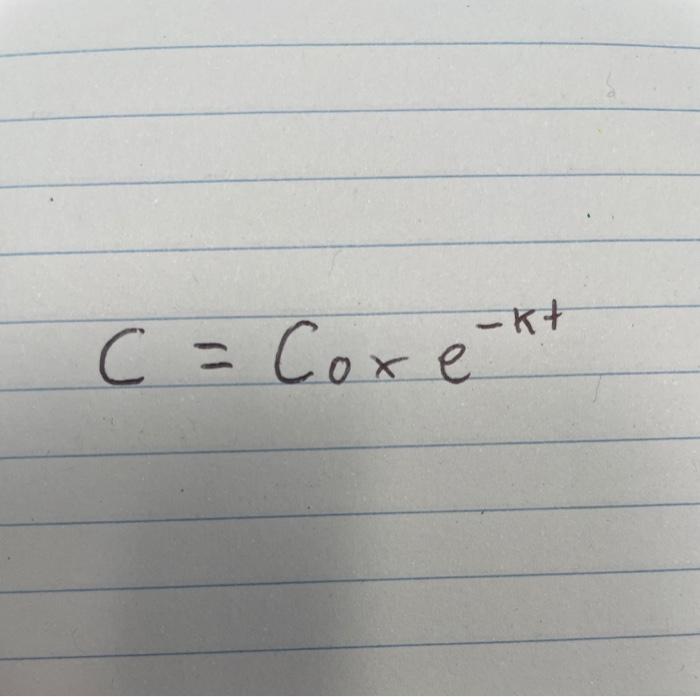 C = C₀ × e⁻ᵏᵗ